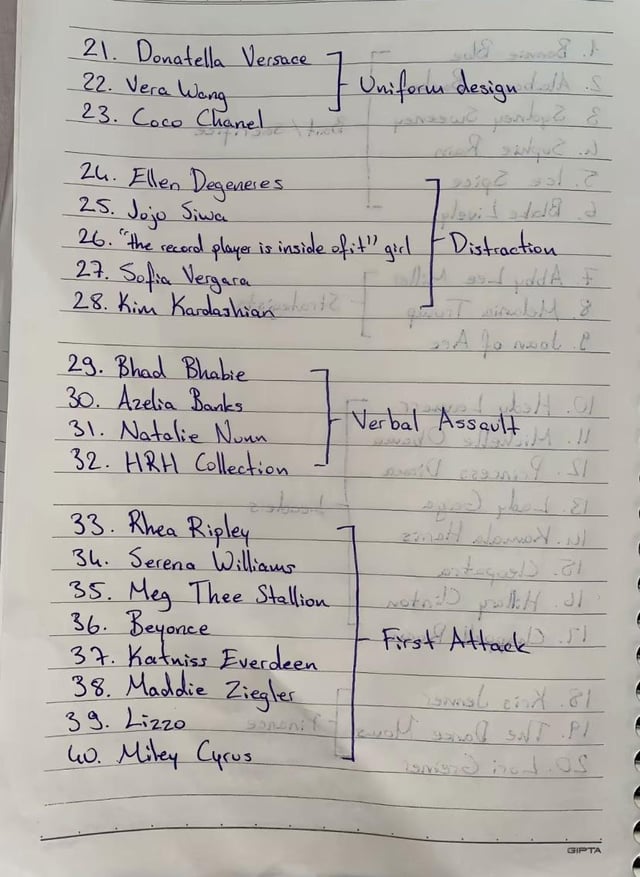 21. Donatella Versace
22. Vera Wang
Uniform design
23. Coco Chanel
24. Ellen Degeneres
25. Jojo Siwa
26. "the record player is inside of it" girl
Distraction
27. Sofia Vergara
28. Kim Kardashian
29. Bhad Bhabie
30. Azelia Banks
Verbal Assault
31. Natalie Nunn
32. HRH Collection
33. Rhea Ripley
34. Serena Williams
35. Meg Thee Stallion
36. Beyonce
First Attack
37. Katniss Everdeen
38. Maddie Ziegler
39. Lizzo
40. Miley Cyrus
GIPTA